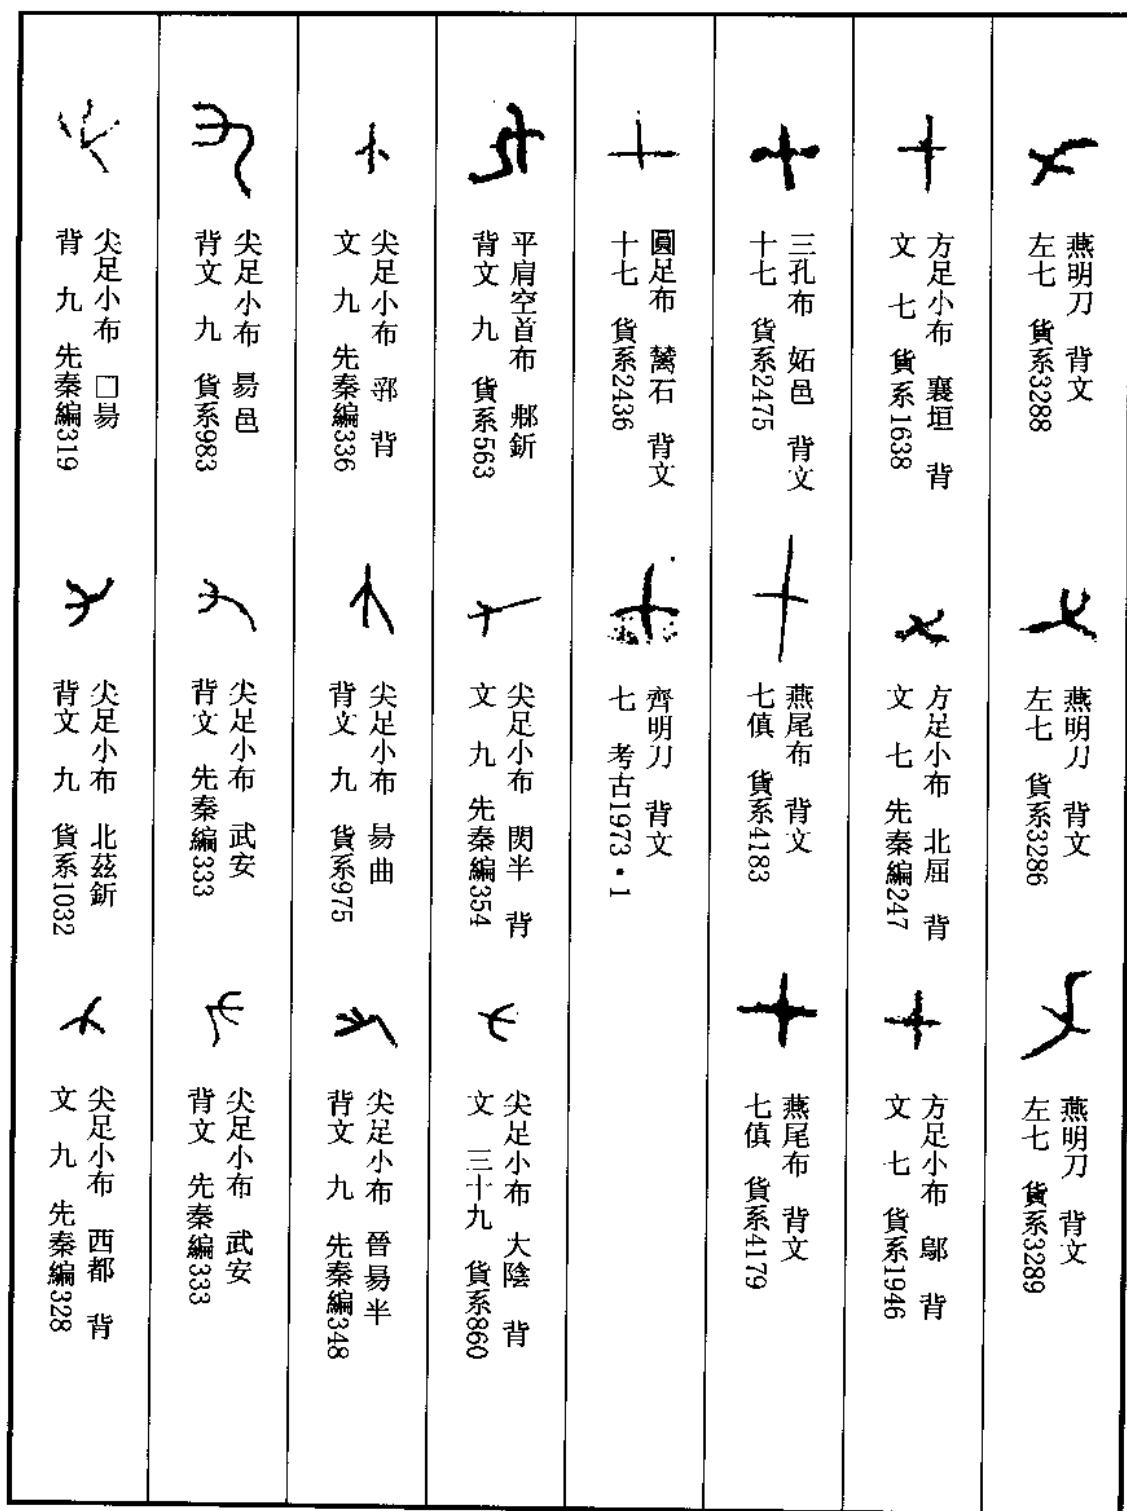 燕明刀 背文
左七 貨系3288
燕明刀 背文
左七 貨系3286
燕明刀 背文
左七 貨系3289
方足小布 襄垣 背
文 七 貨系1638
方足小布 北屈 背
文 七 先秦編247
方足小布 鄔 背
文 七 貨系1946
三孔布 妬邑 背文
十七 貨系2475
燕尾布 背文
七傎 貨系4183
燕尾布 背文
七傎 貨系4179
圓足布 藺石 背文
十七 貨系2436
齊明刀 背文
七 考古1973·1
平肩空首布 釿
背文 九 貨系563
尖足小布 閔半 背
文 九 先秦編354
尖足小布 大陰 背
文 三十九 貨系860
尖足小布 背
文 九 先秦編336
尖足小布 昜曲
背文 九 貨系975
尖足小布 晉昜半
背文 九 先秦編348
尖足小布 昜邑
背文 九 貨系983
尖足小布 武安
背文 先秦編333
尖足小布 武安
背文 先秦編333
尖足小布 □昜
背 九 先秦編319
尖足小布 北茲釿
背文 九 貨系1032
尖足小布 西都 背
文 九 先秦編328